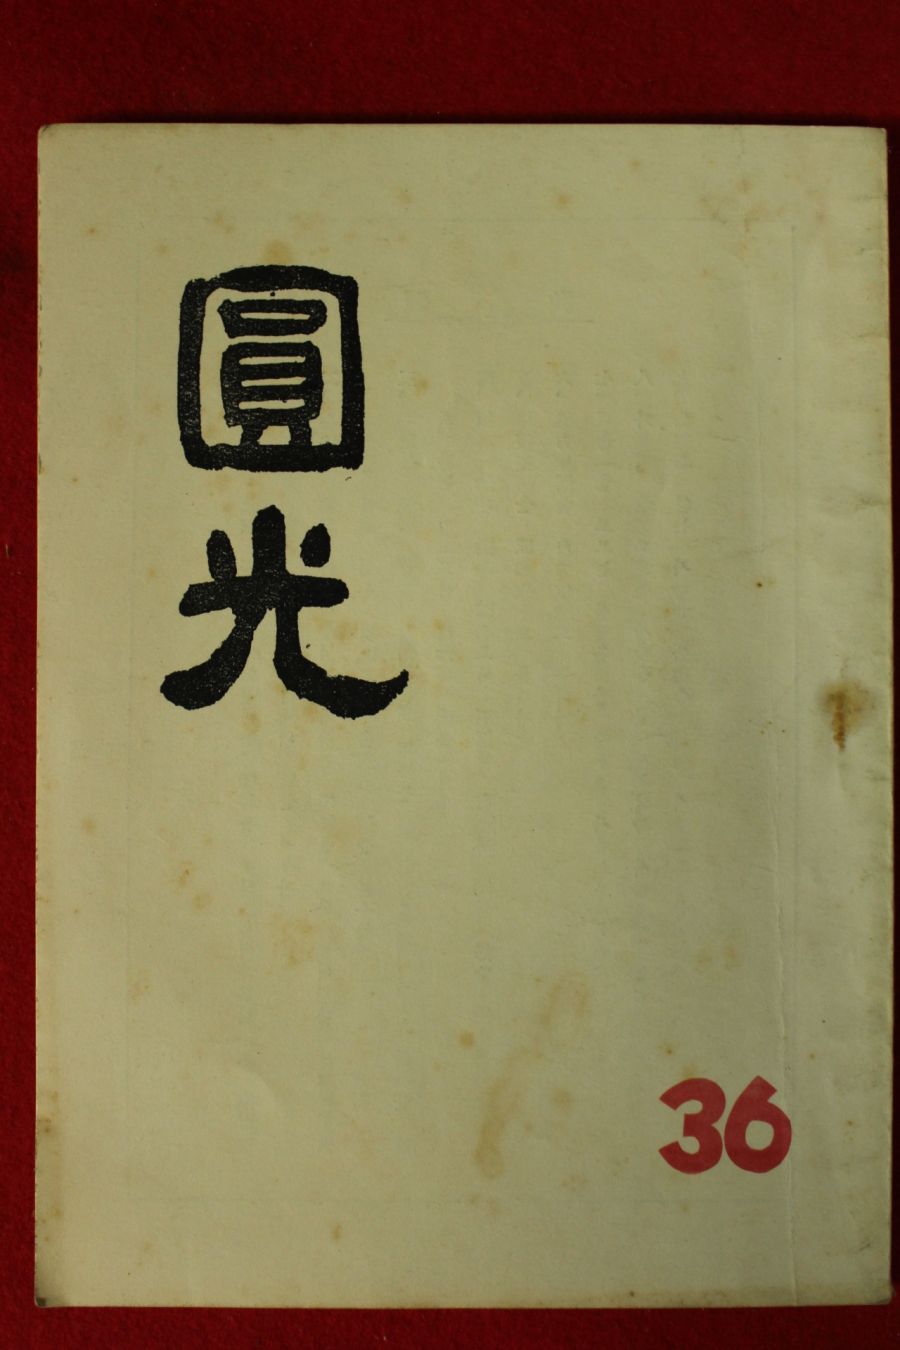 圓光
36